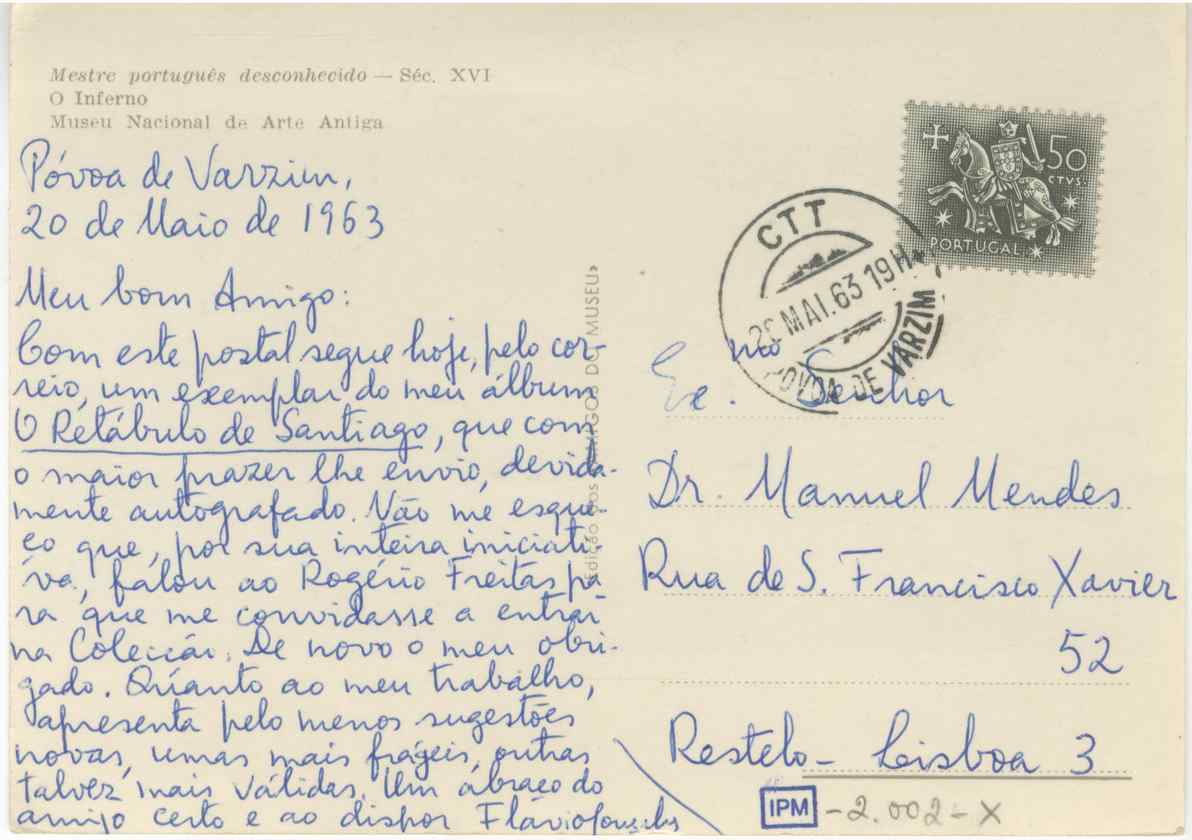 Mestre português desconhecido — Séc. XVI
O Inferno
Museu Nacional de Arte Antiga
Póvoa de Varzim,
20 de Maio de 1963
Meu bom Amigo:
Com este postal segue hoje, pelo cor-
reio, um exemplar do meu álbum
O Retábulo de Santiago, que com
o maior prazer lhe envio, devida-
mente autografado. Não me esque-
ço que, por sua inteira iniciati-
va, falou ao Rogério Freitas pa
ra que me convidasse a entrar
na Colecção. De novo o meu obri-
gado. Quanto ao meu trabalho,
apresenta pelo menos sugestões
novas, umas mais frágeis, outras
talvez mais válidas. Um abraço do
amigo certo e ao dispor Flávio Gonçalves
Edição dos «AMIGOS DO MUSEU»
50
CTVS.
PORTUGAL
CTT
MAI.63 19H
POVOA DE VARZIM
Ex.mo Senhor
Dr. Manuel Mendes
Rua de S. Francisco Xavier
52
Restelo - Lisboa 3
IPM -2.002-X